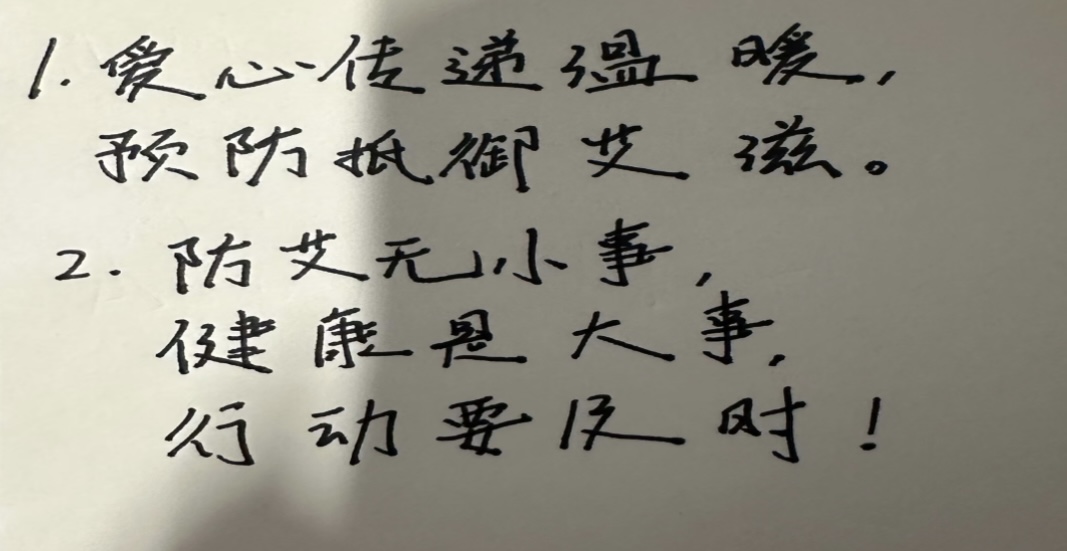 1. 爱心传递温暖，
预防抵御艾滋。
2. 防艾无小事，
健康是大事，
行动要及时！